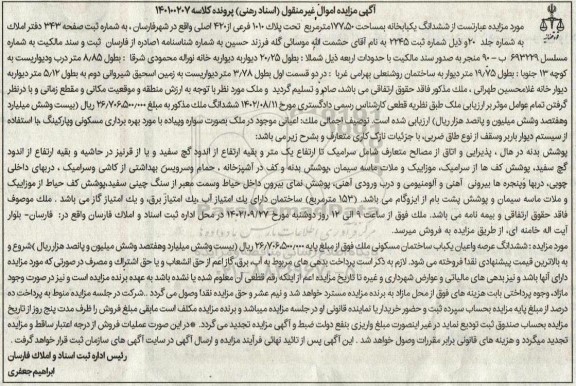 آگهی مزایده اموال غیر منقول (اسناد رهنی) پرونده کلاسه ۱۴۰۱۰۰۲۰۷
مورد مزایده عبارتست از ششدانگ یکبابخانه بمساحت ۱۷۷/۵۰ مترمربع تحت پلاک ۱۰۱۰ فرعی از ۴۲۰ اصلی واقع در شهر فارسان، به شماره ثبت صفحه ۳۴۳ دفتر املاک
به شماره جلد ۲۰ و ذیل شماره ثبت ۲۲۴۵ به نام آقای حشمت الله موسائی گله فرزند حسین به شماره شناسنامه صادره از فارسان ثبت و سند مالکیت به شماره
مسلسل ۶۹۳۲۲۹ ب - ۹۰ منجر به صدور سند مالکیت با حدودات اربعه ذیل شمالا: بطول ۲۰/۲۵ دیواریه دیواریه خانه نوراله محمودی شرقا: بطول ۸/۸۵ متر درب و دیواریست به
کوچه ۱۳ جنوبا: بطول ۱۹/۷۵ متر دیواریه به ساختمان روشنعلی بهرامی غربا: در دو قسمت اول بطول ۳/۷۸ متر دیواریست به زمین اسحق شیروانی دوم به بطول ۵/۱۲ متر دیواریه به
دیوار خانه غلامحسین طهرانی، ملک مذکور فاقد حقوق ارتفاقی می باشد، صادر و تسلیم گردید و ملک مورد نظر با توجه به ارزش منطقه و موقعیت مکانی و مقطع زمانی و با درنظر
گرفتن تمام عوامل موثر بر ارزیابی ملک طبق نظریه قطعی کارشناس رسمی دادگستری مورخ ۱۴۰۲/۰۸/۱۱ ششدانگ ملک مذکور به مبلغ ۲۶/۷۰۶/۵۰۰/۰۰۰ ریال (بیست وشش میلیارد
وهفتصد وشش میلیون و پانصد هزار ریال) ارزیابی شده است. توصیف اجمالی ملک: اعیانی موجود در ملک بصورت سواره وپیاده با مورد بهره برداری مسکونی و پارکینگ با استفاده
از سیستم دیوار باربر وسقف از نوع طاق ضربی، با جزئیات نازک کاری متعارف و بشرح زیر می باشد:
پوشش بدنه در هال، پذیرایی و اتاق از مصالح متعارف شامل سرامیک تا ارتفاع یک متر و بقیه ارتفاع از اندود گچ سفید و یا از قرنیز در حاشیه و بقیه ارتفاع از اندود
گچ سفید، پوشش کف ها از سرامیک، موزاییک و ملات ماسه سیمان، پوشش بدنه و کف در آشپزخانه، حمام وسرویس بهداشتی از کاشی وسرامیک، دربهای داخلی
چوبی، دربها وپنجره ها بیرونی آهنی و آلومنیومی و درب ورودی آهنی، پوشش نمای بیرون داخل حیاط وسمت معبر از سنگ چینی سفید، پوشش کف حیاط از موزاییک
و ملات ماسه سیمان و پوشش پشت بام از ایزوگام می باشد. (۱۵۳ مترمربع) ساختمان دارای یک امتیاز آب، یک امتیاز برق، و یک امتیاز گاز می باشد. ملک موصوف
فاقد حقوق ارتفاقی و بیمه نامه می باشد. ملک فوق از ساعت ۹ الی ۱۲ روز دوشنبه مورخ ۱۴۰۲/۰۹/۲۷ در محل اداره ثبت اسناد و املاک فارسان واقع در: فارسان- بلوار
آیت اله خامنه ای، از طریق مزایده به فروش میرسد.
مورد مزایده: ششدانگ عرصه واعیان یکباب ساختمان مسکونی ملک فوق از مبلغ پایه ۲۶/۷۰۶/۵۰۰/۰۰۰ ریال (بیست وشش میلیارد وهفتصد وشش میلیون و پانصد هزار ریال) شروع و
به بالاترین قیمت پیشنهادی نقدا فروخته می شود. لازم به ذکر است پرداخت بدهی های مربوط به آب، برق، گاز اعم از حق انشعاب و یا حق اشتراک و مصرف در صورتی که مورد مزایده
دارای آنها باشد و نیز بدهی های مالیاتی و عوارض شهرداری و غیره تا تاریخ مزایده اعم از اینکه رقم قطعی آن معلوم شده یا نشده باشد به عهده برنده مزایده است و نیز در صورت وجود
مازاد، وجوه پرداختی بابت هزینه های فوق از محل مازاد به برنده مزایده مسترد خواهد شد و نیم عشر و حق مزایده نقدا وصول می گردد. شرکت در جلسه مزایده منوط به پرداخت ده
درصد از مبلغ پایه مزایده بحساب سپرده ثبت و حضور خریدار یا نماینده قانونی او در جلسه مزایده میباشد و برنده مزایده مکلف است مابقی مبلغ فروش را ظرف مدت پنج روز از تاریخ
مزایده بحساب صندوق ثبت تودیع نماید در غیر اینصورت مبلغ واریزی بنفع دولت ضبط و آگهی مزایده تجدید می گردد. *در این صورت عملیات فروش از درجه اعتبار ساقط و مزایده
تجدید میگردد و هزینه های قانونی برابر مقررات وصول خواهد شد. این آگهی پس از تائید نهائی فرآیند مزایده و ارسال آگهی در سایت آگهی های سازمان ثبت قرار خواهد گرفت.
رئیس اداره ثبت اسناد و املاک فارسان
ابراهیم جعفری